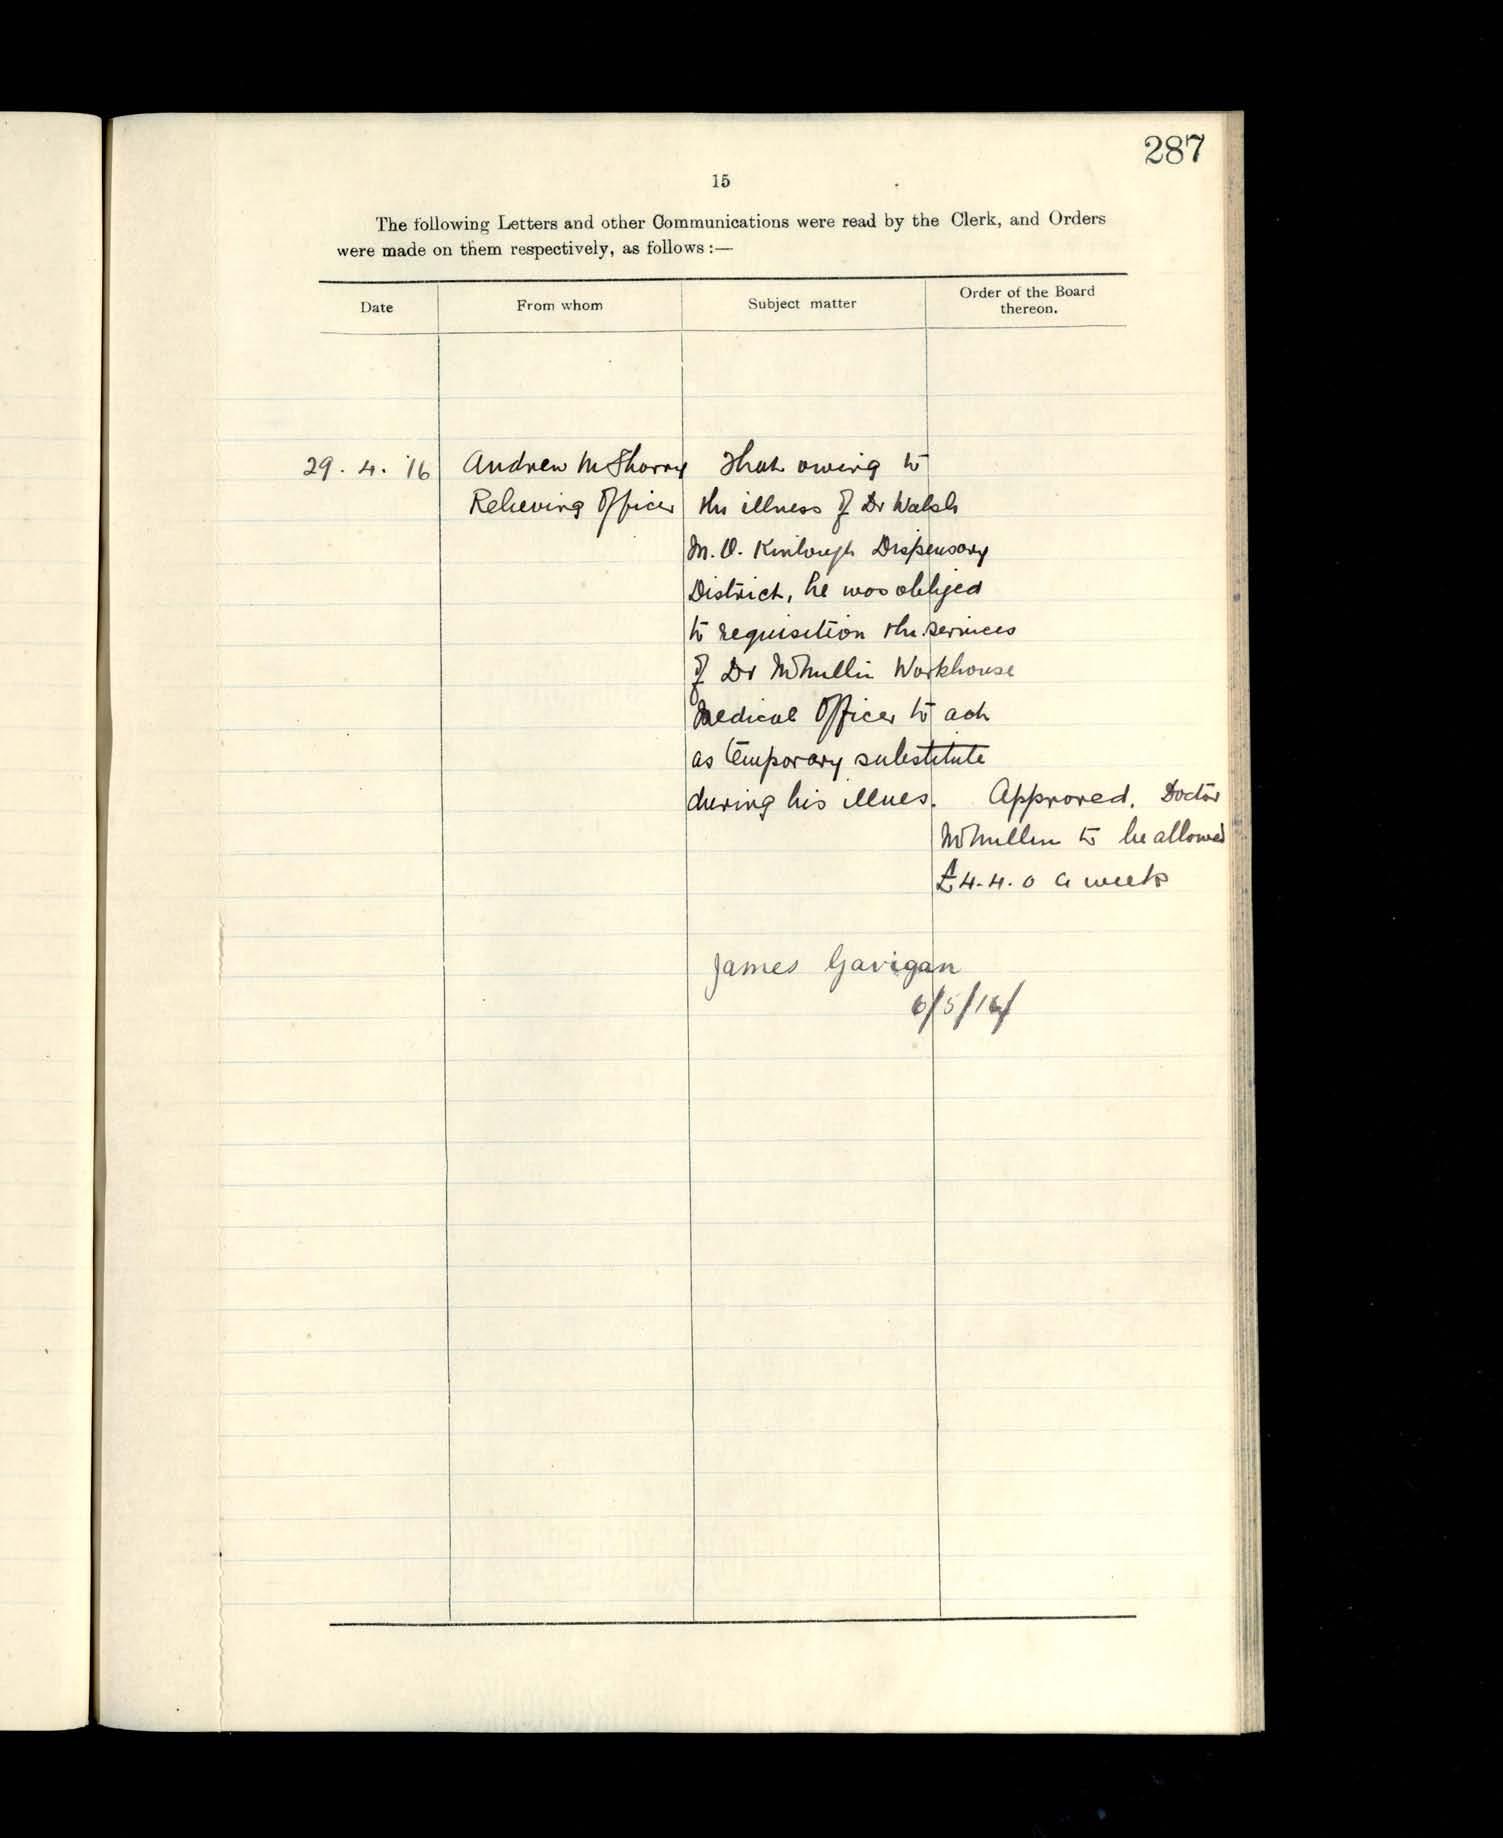 287
15
The following Letters and other Communications were read by the Clerk, and Orders
were made on them respectively, as follows :—
Date
From whom
Subject matter
Order of the Board
thereon.
29. 4. '16
Andrew McSharry
Relieving Officer
That owing to
the illness of Dr Walsh
M.O. Kinlough Dispensary
District, he was obliged
to requisition the services
of Dr McMullin Workhouse
Medical Officer to act
as temporary substitute
during his illnes.
Approved. Doctor
McMullin to be allowed
£4.4.0 a week
James Gavigan
6/5/16/